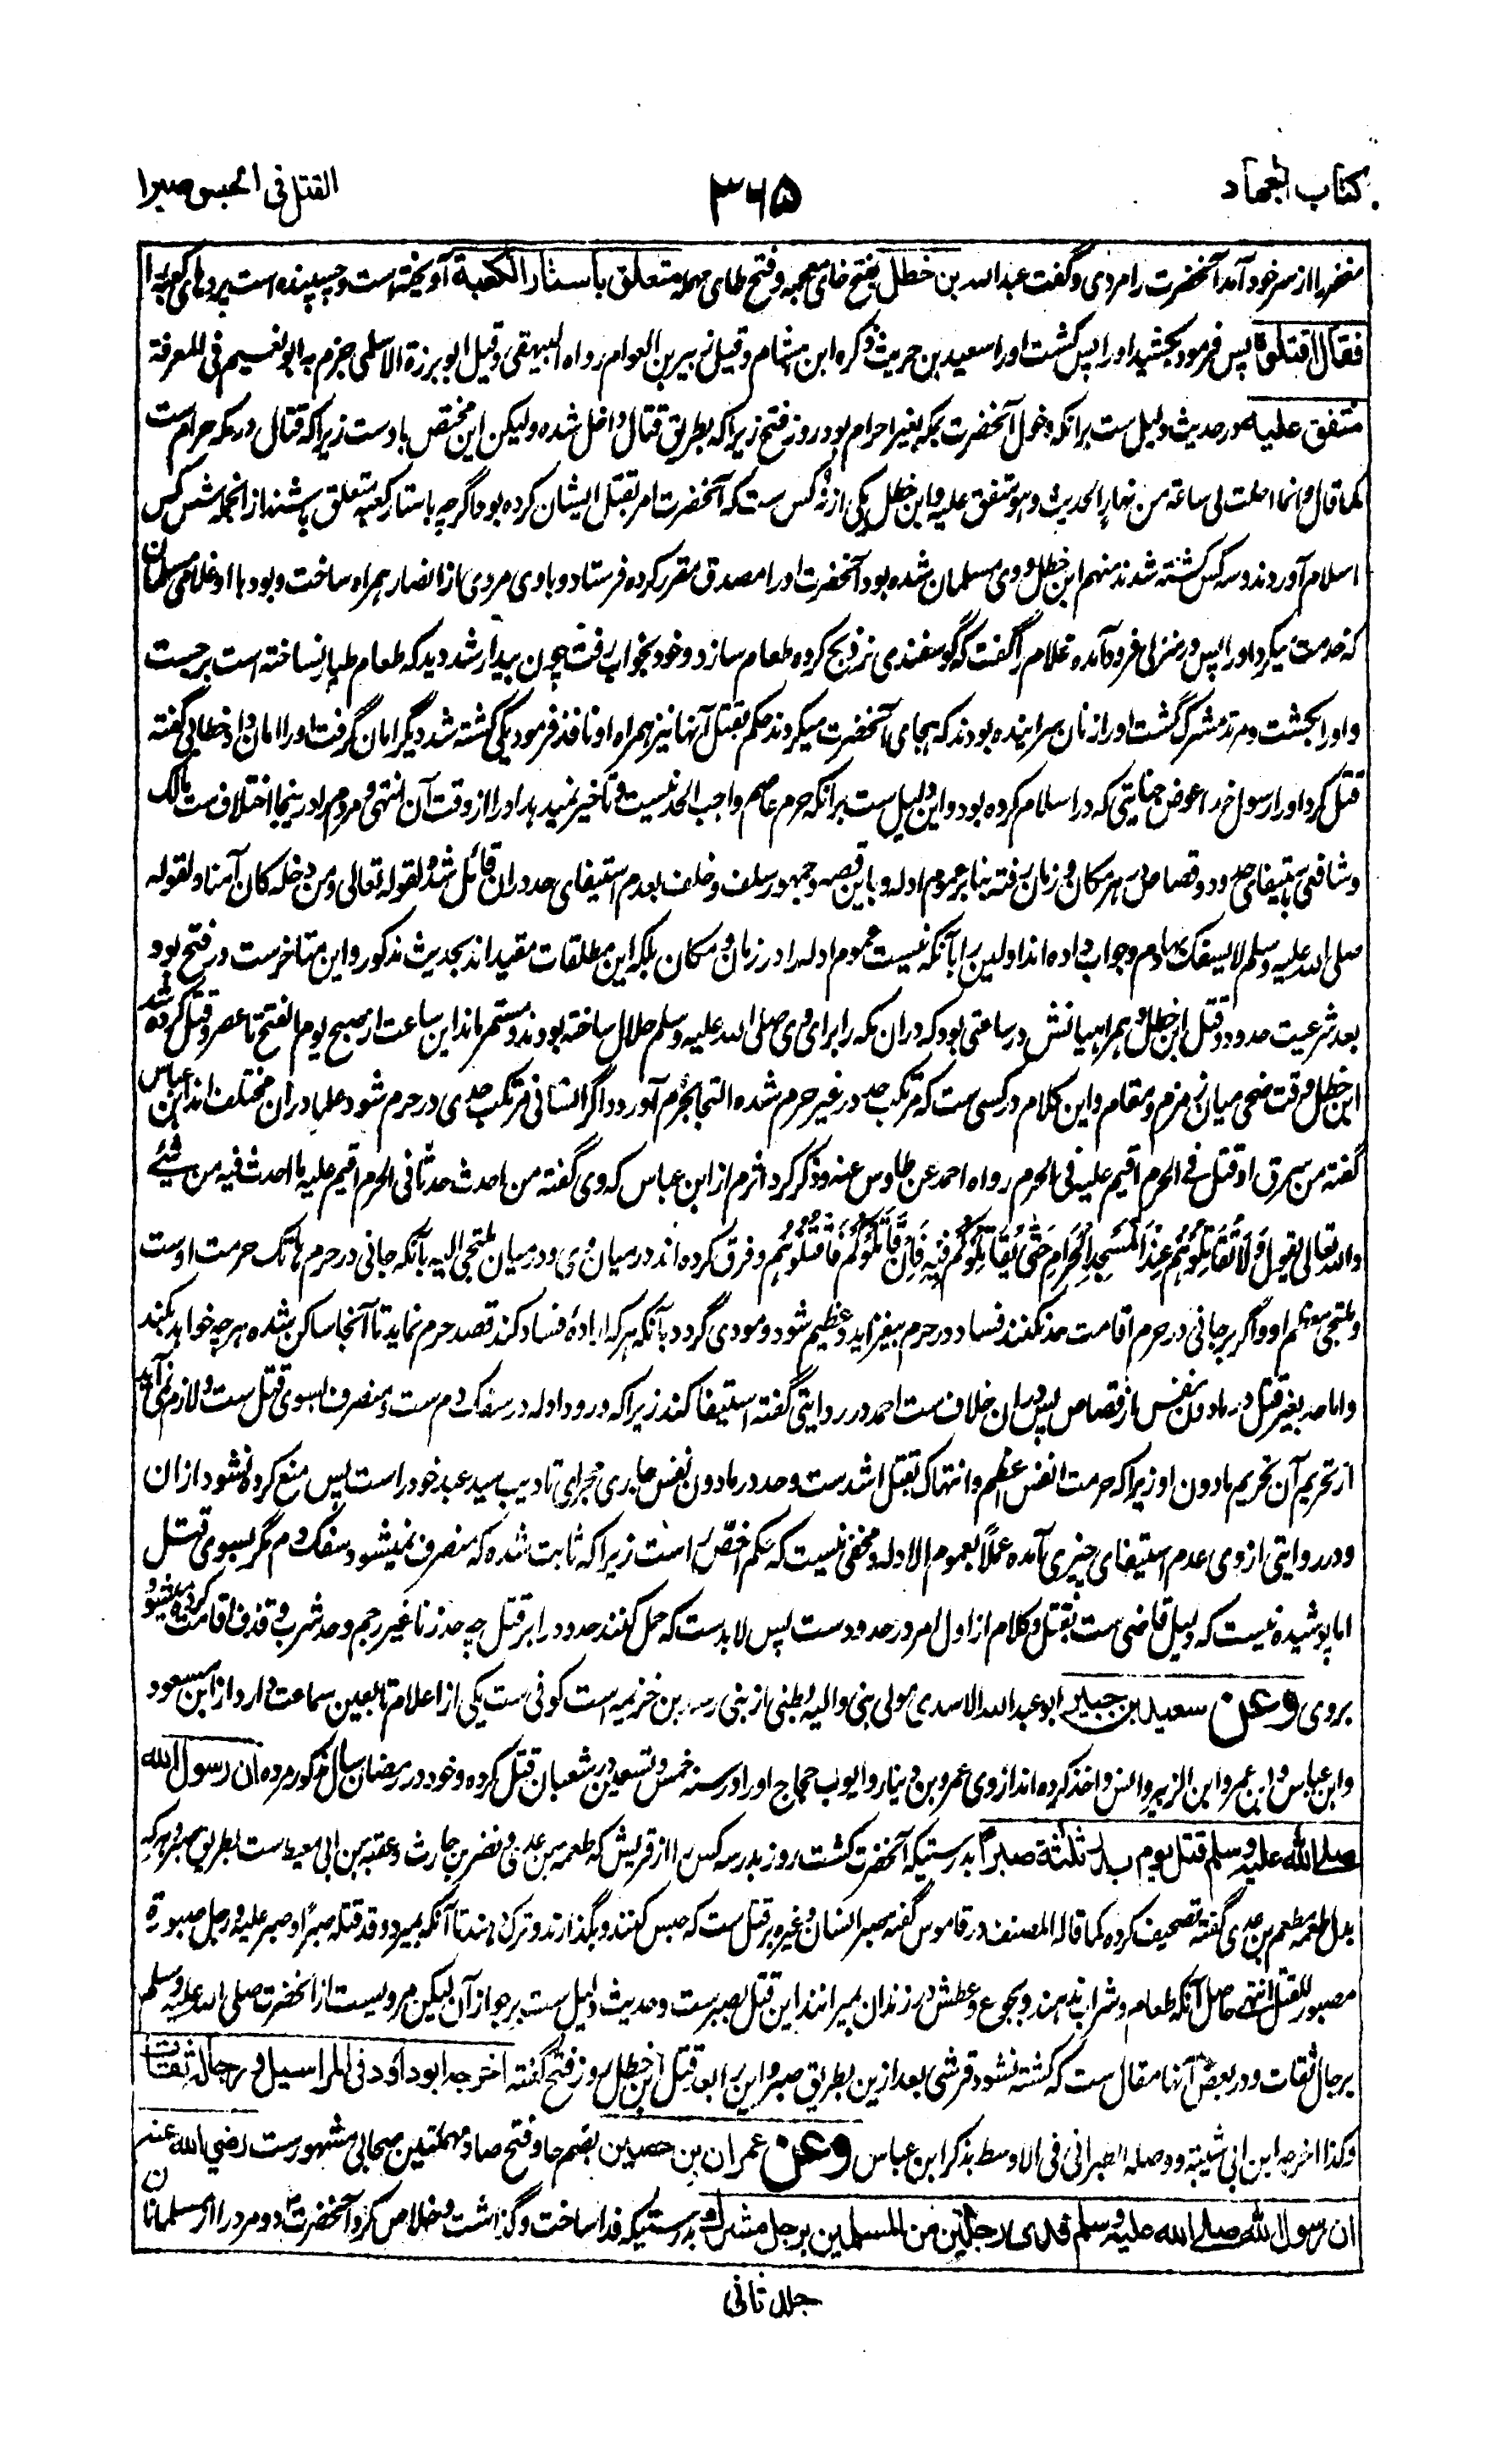 کتاب الجهاد
۳۶۵
القتل فی الحبس صبرا
مغفر را از سر خود آمد آنحضرت را مردی و گفت عبدالله بن خطل بفتح خای معجمه و فتح طای مهمله متعلق بأستار الکعبة آویخته است و چسپیده است بپردهای کعبه را
فقال اقتلوه پس فرمود بکشید او را پس کشت او را سعید بن حریث ذکره ابن هشام و قیل زبیر بن العوام رواه البیهقی و قیل ابو برزة الاسلمی جزم به ابو نعیم فی المعرفة
متفق علیه در حدیث دلیل ست بر آنکه دخول آنحضرت بمکه بغیر احرام بود روز فتح زیرا که بطریق قتال داخل شده و لیکن این مختص باوست زیرا که قتال در مکه حرام ست
کما قال و انما احلت لی ساعة من نهار الحدیث و هو متفق علیه و ابن خطل یکی از نه کس ست که آنحضرت امر بقتل ایشان کرده بود اگرچه باستار کعبه متعلق باشند از انجمله شش کس
اسلام آوردند و سه کس کشته شدند منهم ابن خطل و وی مسلمان شده بود آنحضرت او را مصدق مقرر کرده فرستاد و با وی مردی از انصار همراه ساخت و بود با او غلامی مسلمان
که خدمت میکرد او را پس در منزلی فرود آمده غلام را گفت که گوسفندی نر ذبح کرده طعام سازد و خود بخواب رفت چون بیدار شد دید که طعام طیار نساخته است برجست
و او را بکشت و مرتد مشرک گشت او را زنان سراینده بودند که هجای آنحضرت میکردند حکم بقتل آنها نیز همراه او نافذ فرمود یکی کشته شد دیگر امان گرفت او را امان داد خطابی گفته
قتل کرد او را رسول خدا عوض جنایتی که در اسلام کرده بود و این دلیل ست بر آنکه حرم عاصم واجب الحد نیست و تاخیر نمیدهد او را از وقت آن انتهی و مردم را درینجا اختلاف ست مالک
و شافعی باستیفای حدود و قصاص در هر مکان و زمان رفته بنا بر عموم ادله و باین قصه و جمهور سلف و خلف بعدم استیفای حد در ان قائل شده لقوله تعالی و من دخله کان آمنا و لقوله
صلی الله علیه وسلم لا یسفک بها دم و جواب داده اند اولین را بآنکه نیست عموم ادله را در زمان و مکان بلکه این مطلقات مقید اند بحدیث مذکور و این متاخر ست در فتح بود
بعد شرعیت حدود و قتل ابن خطل و همراهیانش در ساعتی بود که در ان مکه را برای وی صلی الله علیه وسلم حلال ساخته بودند و مستمر ماند این ساعت از صبح یوم الفتح تا عصر و قتل کرده شد
ابن خطل وقت ضحی میان زمزم و مقام و این کلام در کسی ست که مرتکب حد در غیر حرم شده التجا بحرم آورد و اگر انسانی مرتکب حدی در حرم شود علما در ان مختلف اند ابن عباس
گفته من سرق او قتل فی الحرم اقیم علیه فی الحرم رواه احمد عن طاوس عنه و ذکر کرد اثرم از ابن عباس که وی گفته من احدث حدثا فی الحرم اقیم علیه ما احدث فیه من شیٔ
والله تعالی یقول وَلَا تُقَاتِلُوْهُمْ عِنْدَ الْمَسْجِدِ الْحَرَامِ حَتّٰی یُقَاتِلُوْکُمْ فِیْهِ فَاِنْ قَاتَلُوْکُمْ فَاقْتُلُوْهُمْ و فرق کرده اند در میان وی و در میان ملتجی الیه بآنکه جانی در حرم هاتک حرمت اوست
و ملتجی معظم او و اگر بر جانی در حرم اقامت حد نکنند فساد در حرم بیفزاید و عظیم شود و مودی گردد بآنکه هر که ارادهٔ فساد کند قصد حرم نماید تا آنجا ساکن شده هرچه خواهد بکند
و اما حد بغیر قتل در مادون نفس از قصاص پس در ان خلاف ست احمد در روایتی گفته استیفا کند زیرا که ورود ادله در سفک دم ست و منصرف بسوی قتل ست و لازم نمی آید
از تحریم آن تحریم مادون او زیرا که حرمت نفس اعظم و انتهاک بقتل اشدست و حد در مادون نفس جاری مجرای تادیب سید عبد خود را است پس منع کرده نشود از ان
و در روایتی از وی عدم استیفای چیزی آمده عملاً بعموم الادله و مخفی نیست که حکم اخص راست زیرا که ثابت شده که منصرف نمیشود سفک دم مگر بسوی قتل
اما پوشیده نیست که دلیل قاضی ست بقتل و کلام از اول امر در حدود ست پس لابدست که حمل کنند حدود را بر قتل چه حد زنا غیر رجم و حد شرب و قذف اقامت کرده میشود
بروی وعن سعید بن جبیر ابو عبدالله الاسدی مولی بنی والیه بطنی از بنی اسد بن خزیمه است کوفی ست یکی از اعلام تابعین سماعت دارد از ابن مسعود
و ابن عباس و ابن عمر و ابن الزبیر و انس و اخذ کرده اند از وی عمرو بن دینار و ایوب حجاج او را در سنه خمس و تسعین در شعبان قتل کرده و خود در رمضان سال مذکور مرده ان رسول الله
صلی الله علیه وسلم قتل یوم بدر ثلثة صبرا بدرستیکه آنحضرت کشت روز بدر سه کس را از قریش که طعمه بن عدی و نضر بن حارث و عقبه بن ابی معیط ست بطریق صبر و هر که
بدل طعمه مطعم بن عدی گفته تصحیف کرده کما قاله المصنف در قاموس گفته صبر انسان و غیره بر قتل ست که حبس کنند و بگذارند و ترک دهند تا آنکه بمیرد و قد قتله صبرا و صبر علیه و رجل صبورة
مصبور للقتل انتهی حاصل آنکه طعام و شراب ندهند و بجوع و عطش در زندان بمیرانند این قتل بصبرست و حدیث دلیل ست بر جواز آن لیکن مرویست از آنحضرت صلی الله علیه وسلم
برجال ثقات و در بعض آنها مقال ست که کشته نشود قرشی بعد ازین بطریق صبر و این را بعد قتل ابن خطل روز فتح گفته اخرجه ابو داؤد فی المراسیل و رجاله ثقات
و کذا اخرجه ابن ابی شیبة و وصله الطبرانی فی الاوسط بذکر ابن عباس وعن عمران بن حصین بضم حا و فتح صاد مهملتین صحابی مشهورست رضی الله عنه
ان رسول الله صلی الله علیه وسلم فدی رجلین من المسلمین برجل مشرک بدرستیکه فدا ساخت و گذاشت و خلاص کرد آنحضرت دو مرد را از مسلمانان
جلد ثانی